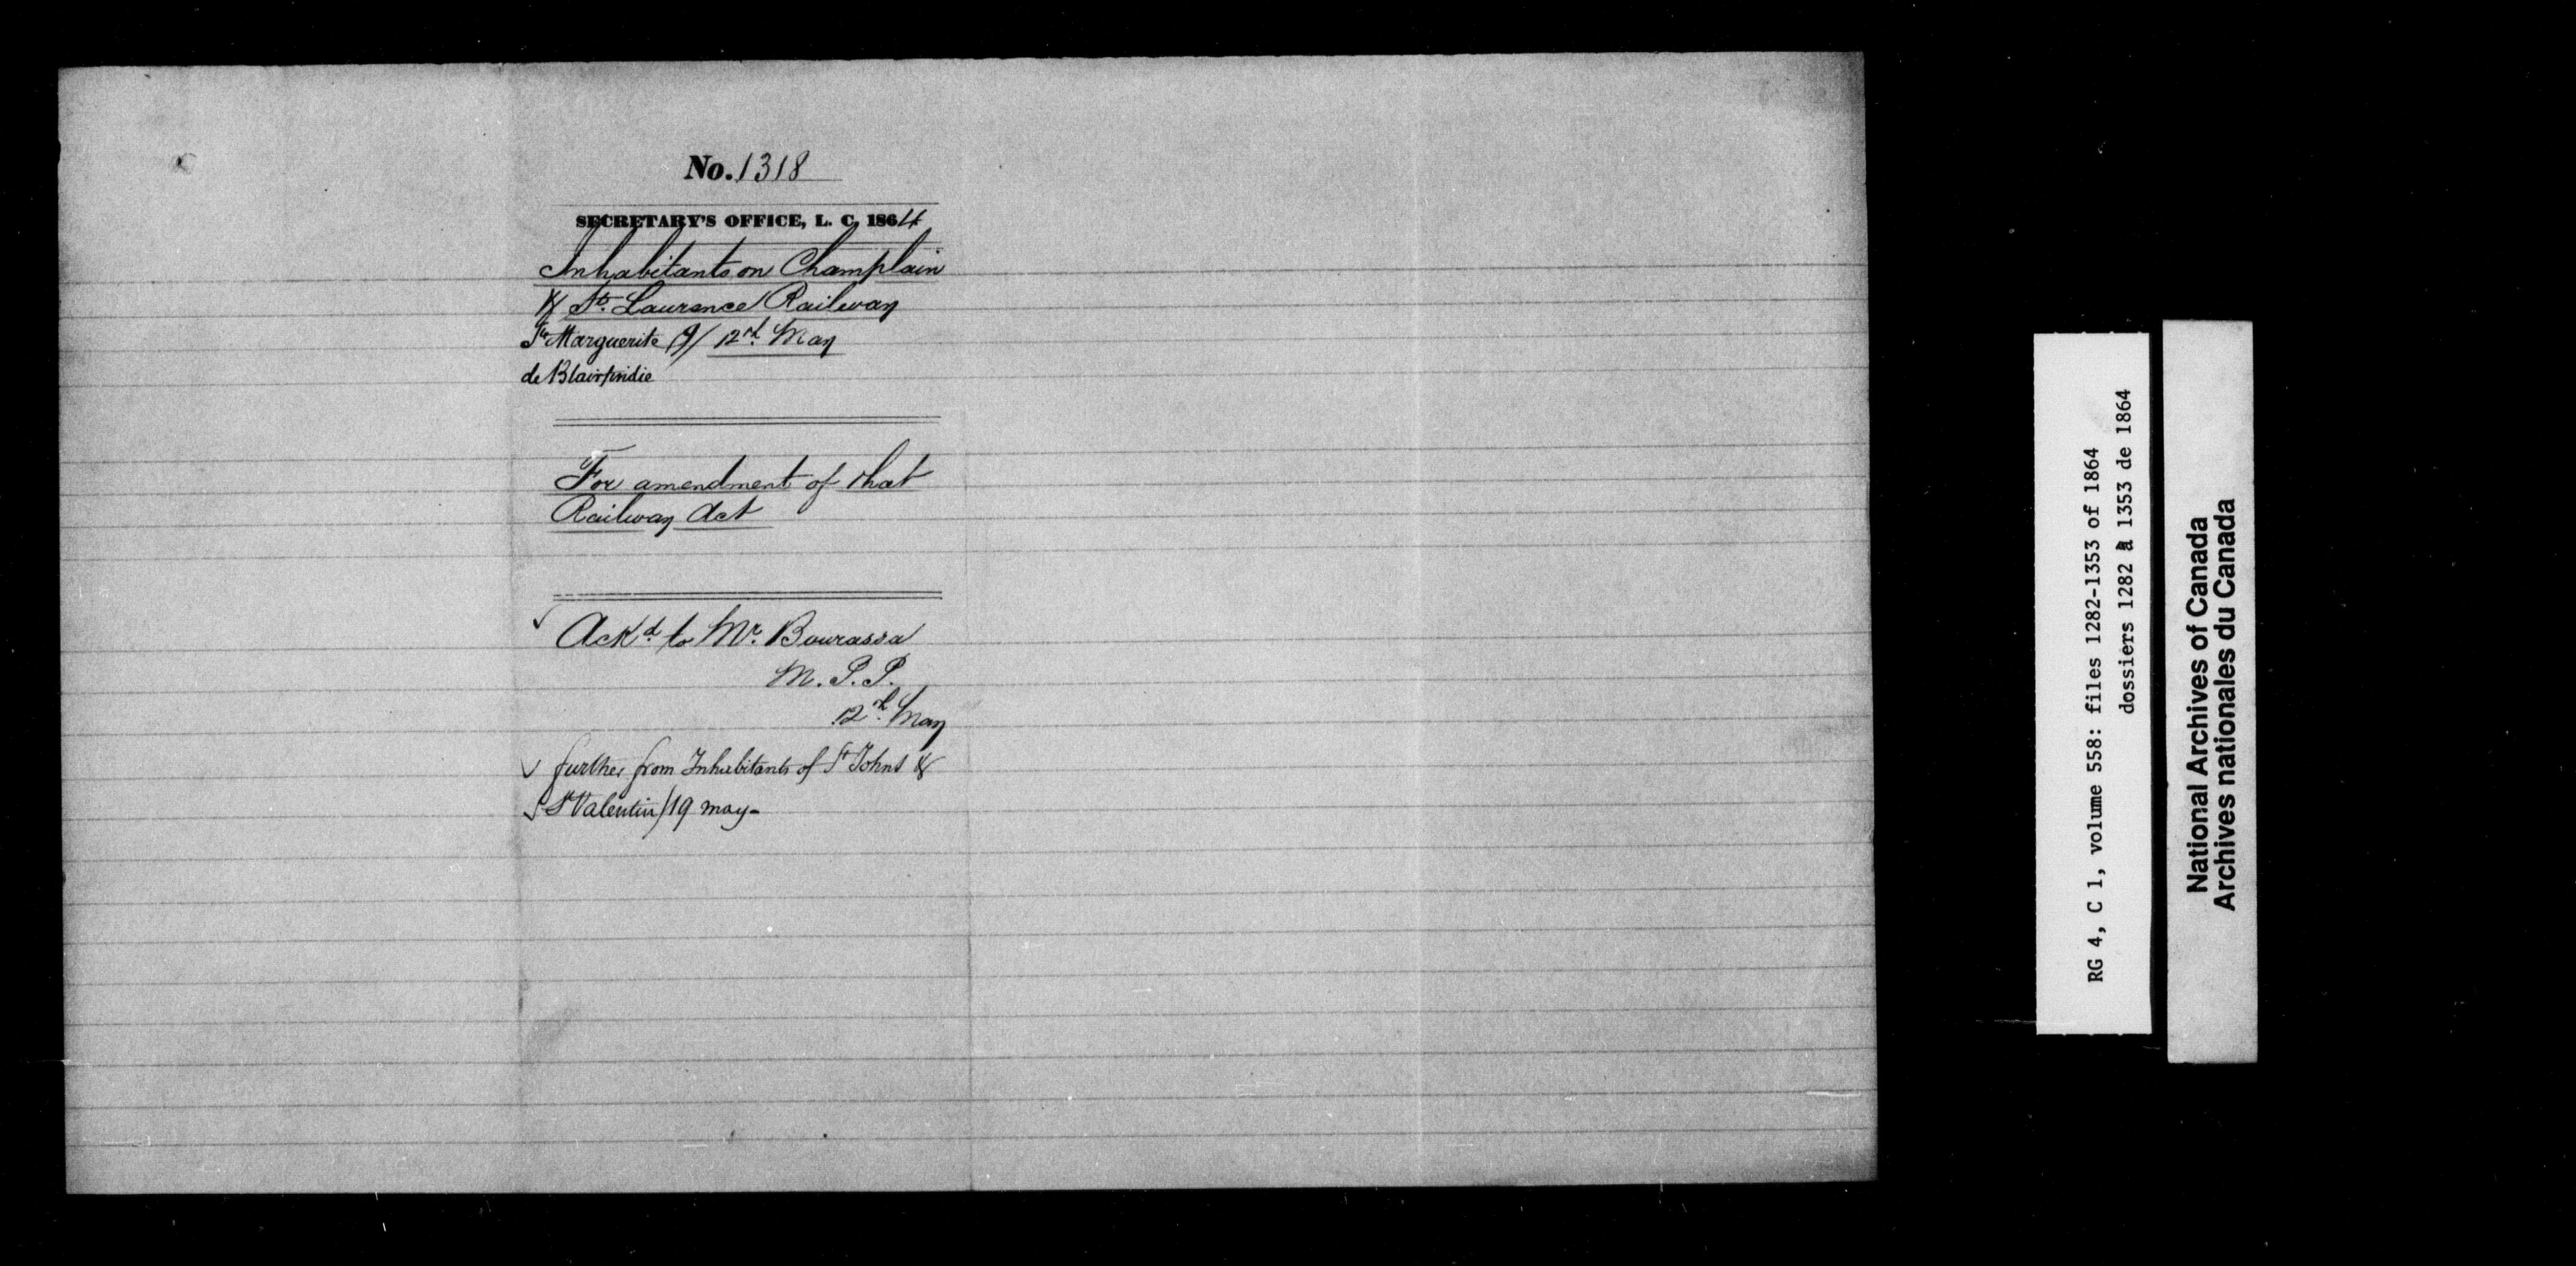 No. 1318
SECRETARY'S OFFICE, L. C, 1864
Inhabitants on Champlain
& St. Laurence Railway
Ste Marguerite 12th May
de Blairfindie
For amendment of that
Railway Act
✓ Ackd. to Mr. Bourassa
M. P. P.
12th. May
✓ further from Inhabitants of St Johns &
✓ St Valentin / 19 may-
RG 4, C 1, volume 558: files 1282-1353 of 1864
dossiers 1282 à 1353 de 1864
National Archives of Canada
Archives nationales du Canada